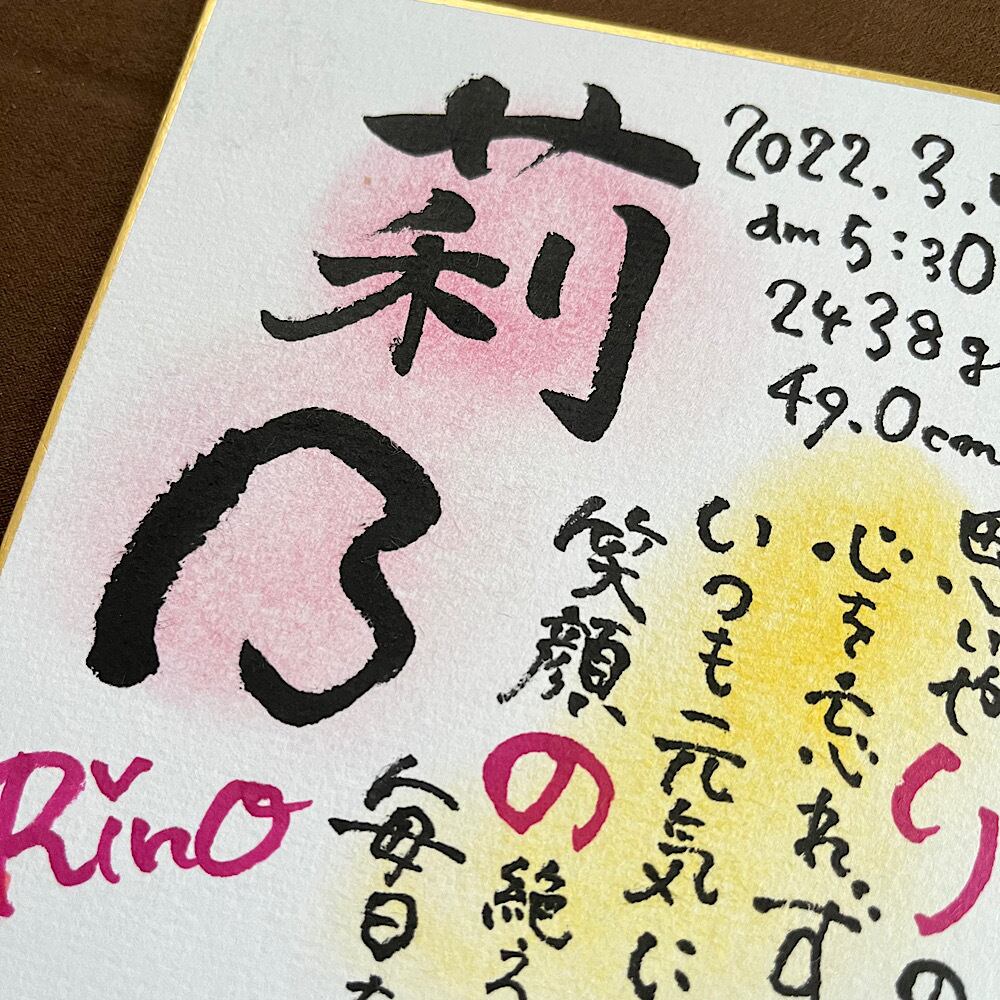 莉乃
Rino
2022.3.
am 5:30
2438g
49.0cm
思いや
りの
心を忘れず
いつも元気に
笑顔
の絶え
毎日